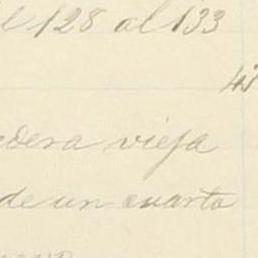 el 128 al 133
4
dera vieja
de un cuarto